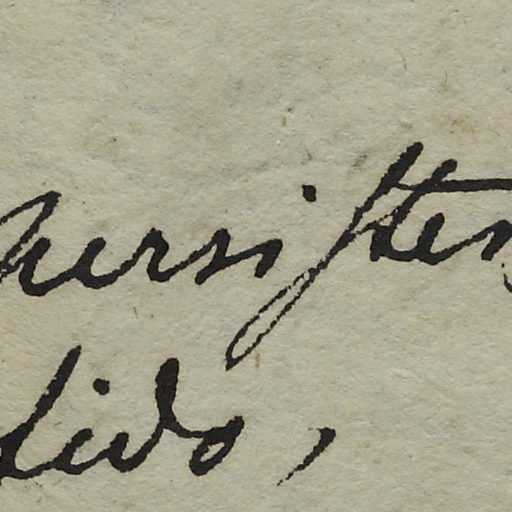 hersisten
dido,